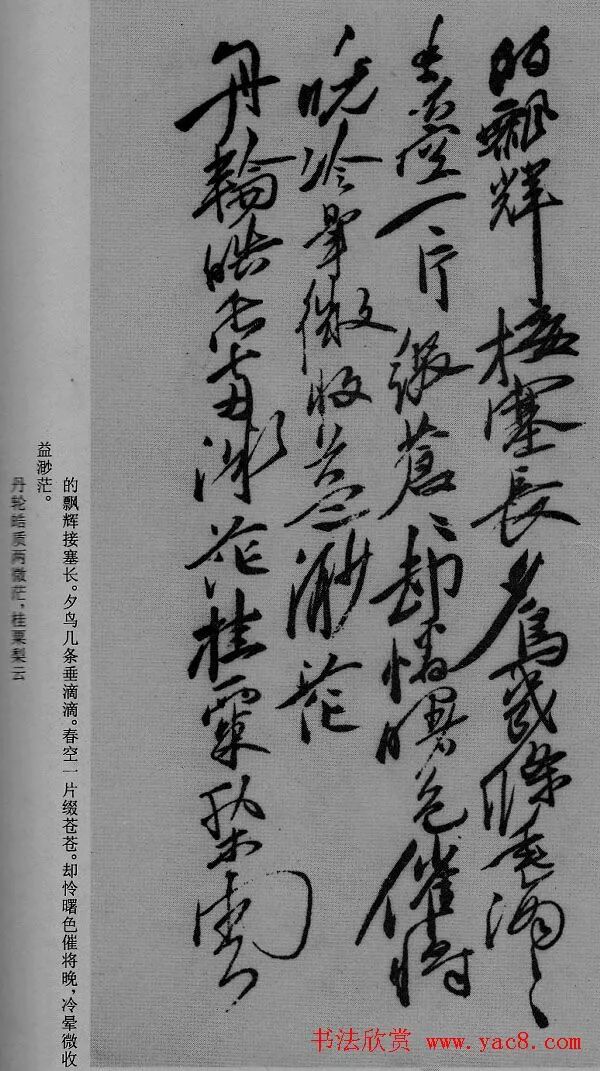 的飄輝接塞長夕鳥幾條垂滴〻
春空一片綴蒼〻却憐曙色催將
晚冷暈微收益渺茫
丹輪皓质兩微茫桂粟梨雲
的飘辉接塞长。夕鸟几条垂滴滴。春空一片缀苍苍。却怜曙色催将晚，冷晕微收
益渺茫。
丹轮皓质两微茫，桂粟梨云
书法欣赏 www.yac8.com